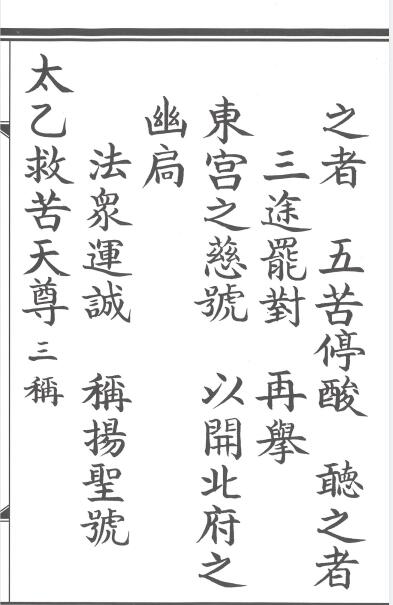 之者　五苦停酸　聽之者
三途罷對　再舉
東宮之慈號　以開北府之
幽扃
法眾運誠　稱揚聖號
太乙救苦天尊三稱